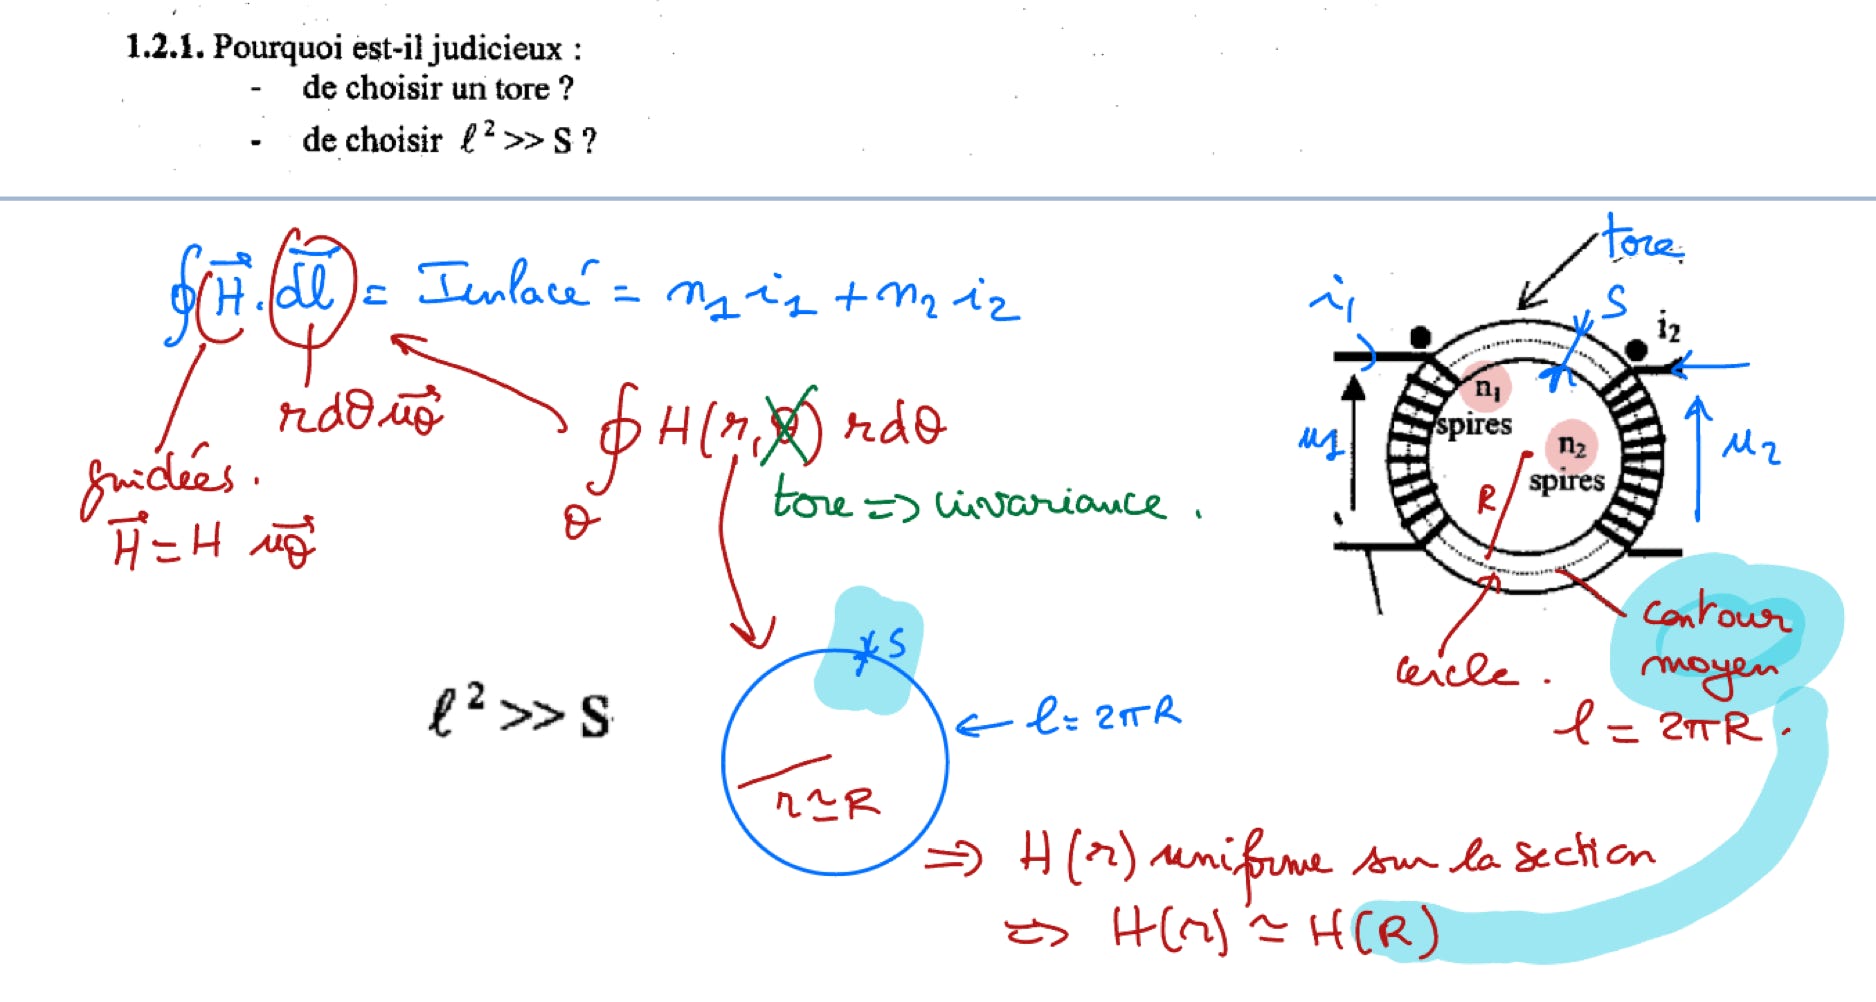 1.2.1. Pourquoi est-il judicieux :
- de choisir un tore ?
- de choisir ℓ² >> S ?
∮ H⃗ . dl⃗ = Ienlacé = n₁ i₁ + n₂ i₂
rdθ u⃗θ
guidées.
H⃗ = H u⃗θ
∮ H(r, θ) rdθ
θ
tore => invariance.
tore
S
i₁
i₂
n₁
spires
n₂
spires
u₁
u₂
R
cercle.
contour
moyen
l = 2πR.
ℓ² >> S
S
← l = 2πR
r ≃ R
=> H(r) uniforme sur la section
=> H(r) ≃ H(R)